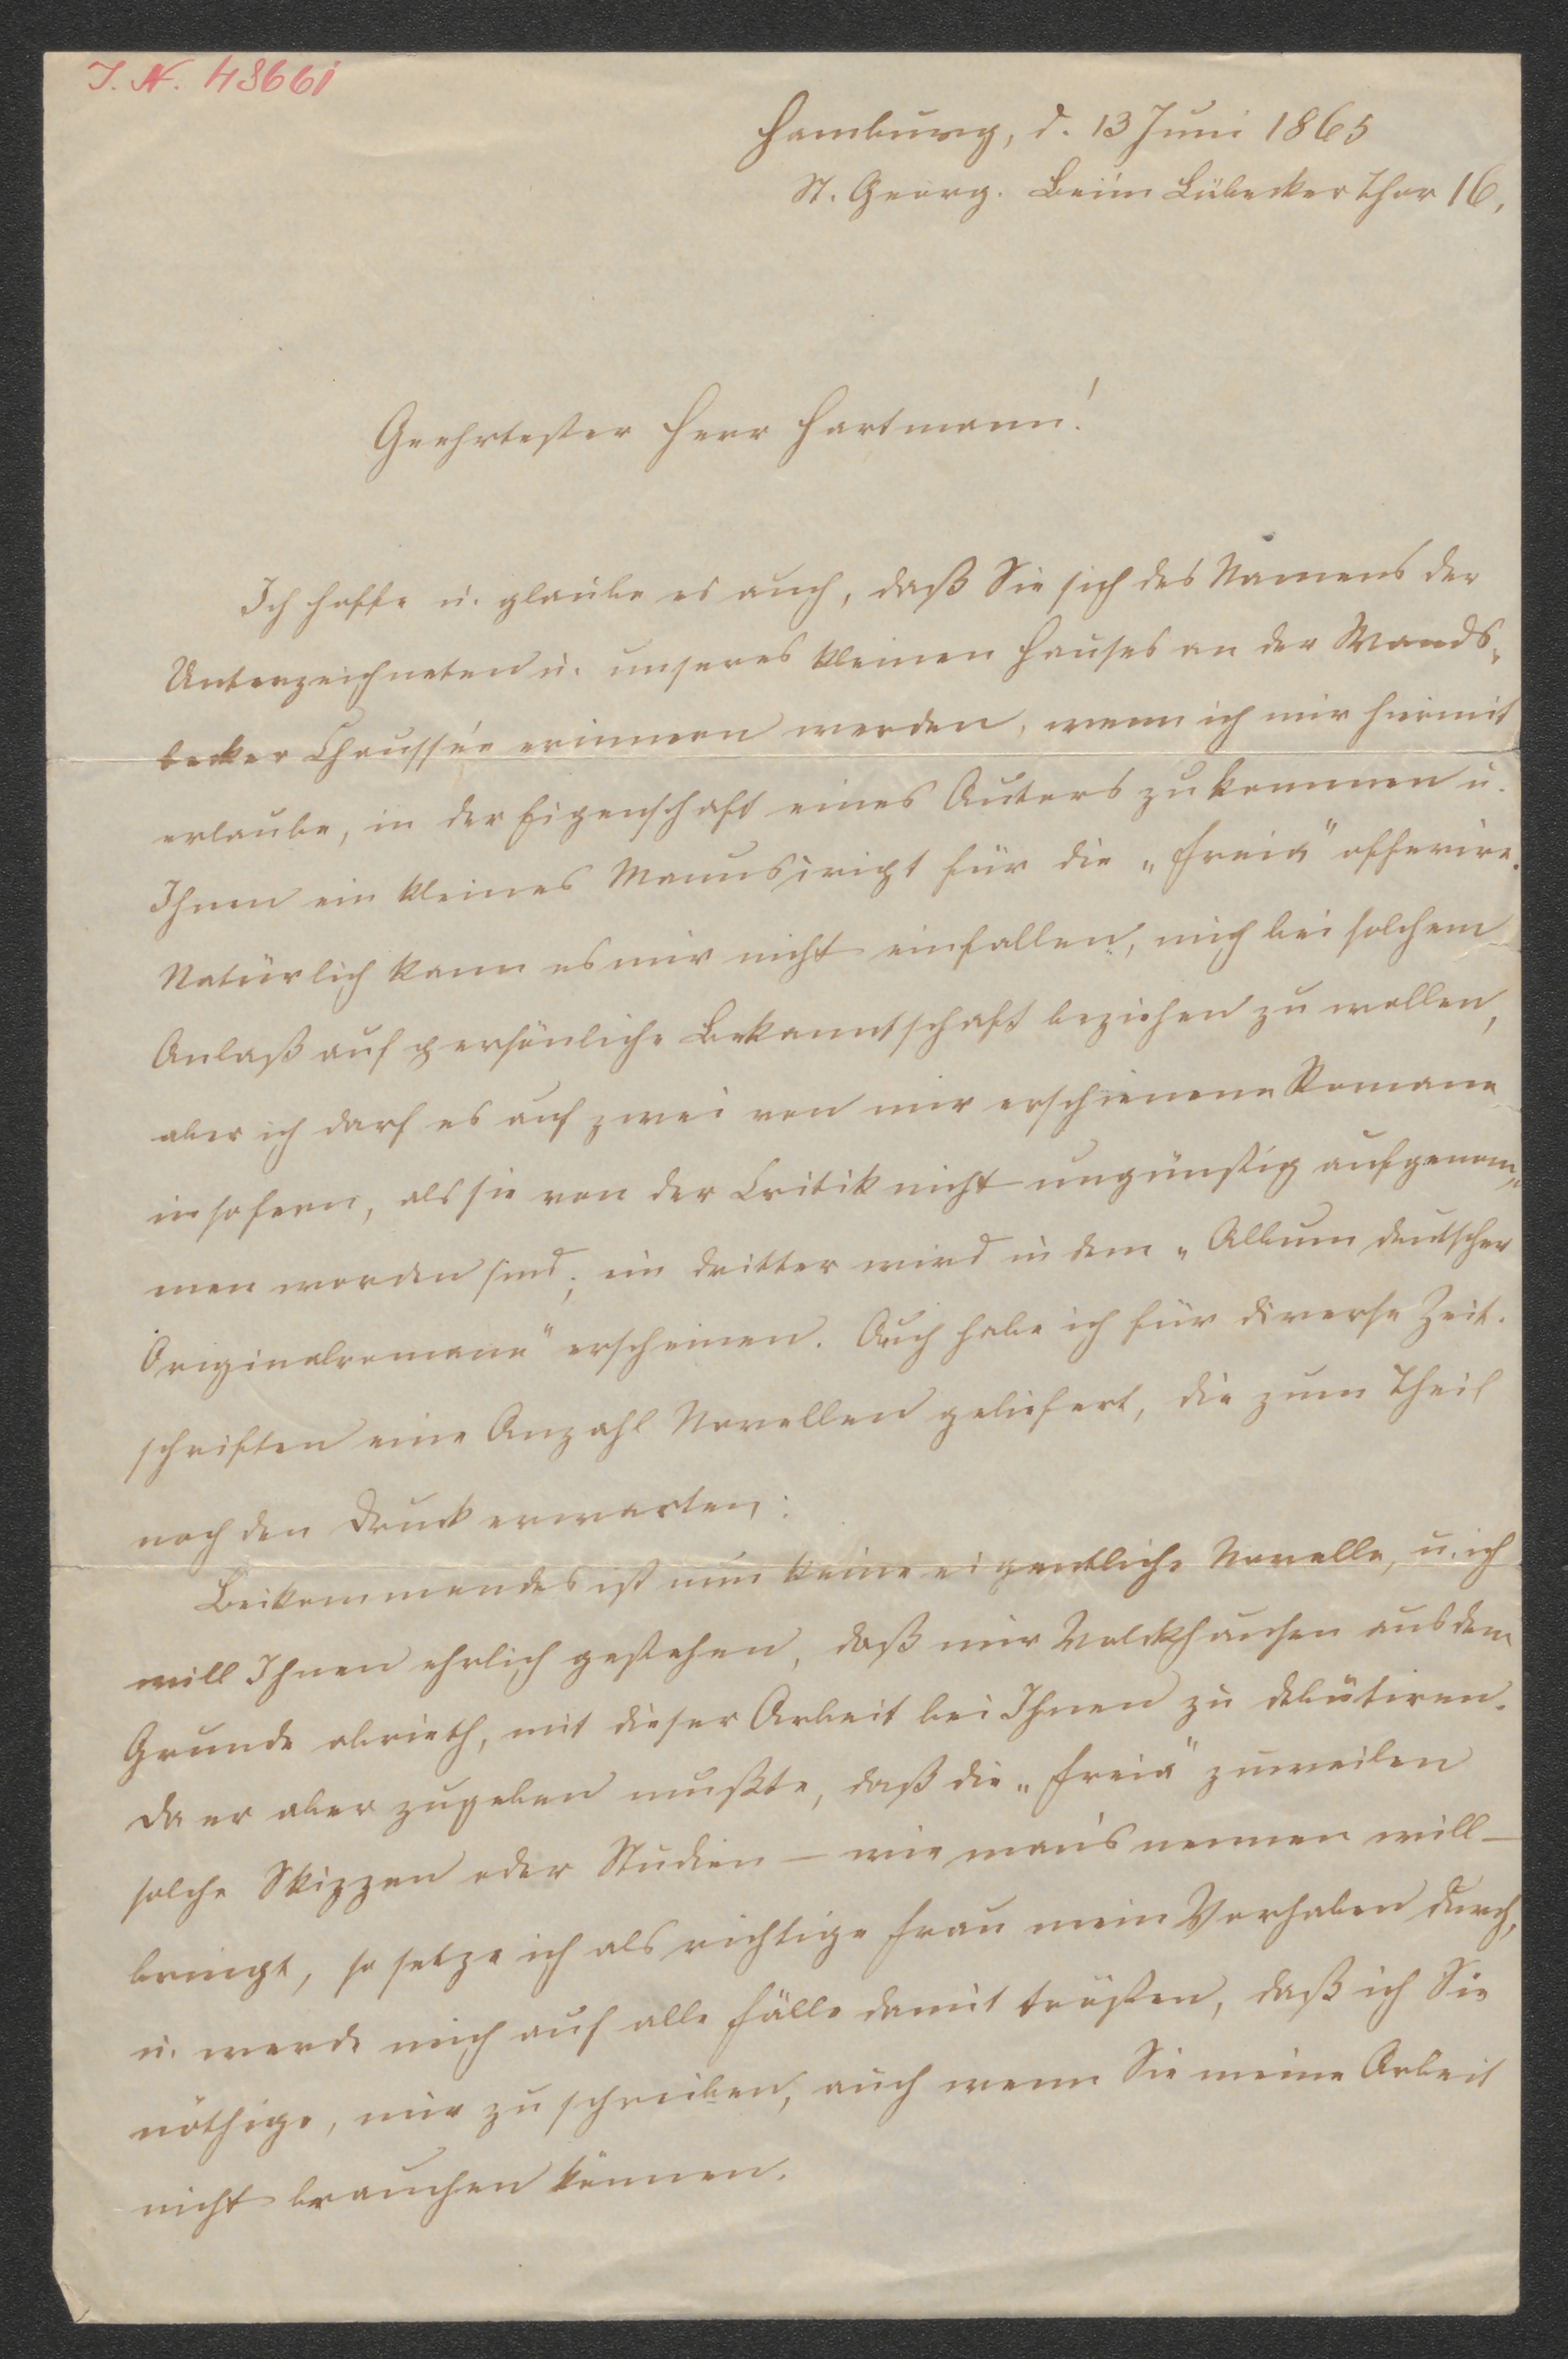 J. N. 48661
Hamburg, d. 13 Juni 1865
St. Georg. Beim Lübecker Thor 16,
Geehrtester Herr Hartmann!
Ich hoffe u. glaube es auch, daß Sie sich des Namens der
Unterzeichneten u. unseres kleinen Hauses an der Wands-
becker Chaussée erinnern werden, wenn ich mir hiermit
erlaube, in der Eigenschaft eines Autors zu kommen u.
Ihnen ein kleines Manuscript für die „Freia" offerire.
Natürlich kann es mir nicht einfallen, mich bei solchem
Anlaß auf persönliche Bekanntschaft beziehen zu wollen,
aber ich darf es auf zwei von mir erschienene Romane
insofern, als sie von der Critik nicht ungünstig aufgenom-
men worden sind; ein dritter wird in dem „Album deutscher
Originalromane" erscheinen. Auch habe ich für diverse Zeit-
schriften eine Anzahl Novellen geliefert, die zum Theil
noch den Druck erwarten.
Beikommendes ist nun keine eigentliche Novelle, u. ich
will Ihnen ehrlich gestehen, daß mir Volckhausen aus dem
Grunde abrieth, mit dieser Arbeit bei Ihnen zu debütiren.
Da er aber zugeben mußte, daß die „Freia" zuweilen
solche Skizzen oder Studien – wie man's nennen will –
bringt, so setze ich als richtige Frau mein Vorhaben durch,
u. werde mich auf alle Fälle damit trösten, daß ich Sie
nöthige, mir zu schreiben, auch wenn Sie meine Arbeit
nicht brauchen können.